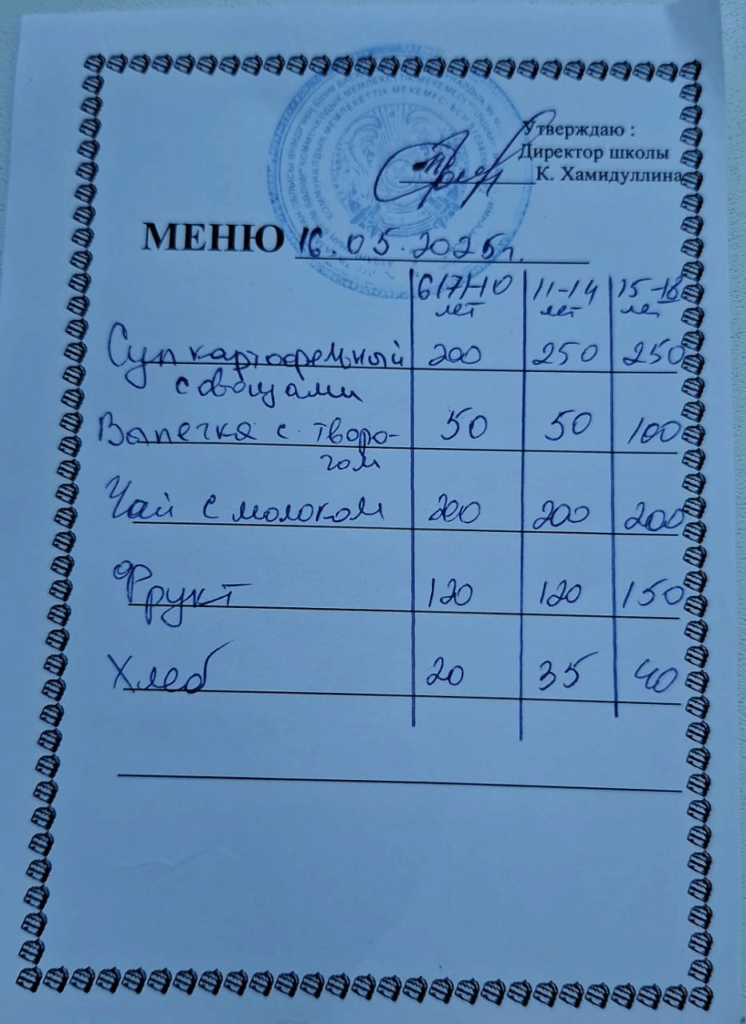 Утверждаю :
Директор школы
К. Хамидуллина
МЕНЮ 16.05.2025г.
6(7)-10 лет 11-14 лет 15-18 лет
Суп картофельный 200 250 250
с овощами
Выпечка с творо- 50 50 100
гом
Чай с молоком 200 200 200
Фрукт 120 120 150
Хлеб 20 35 40